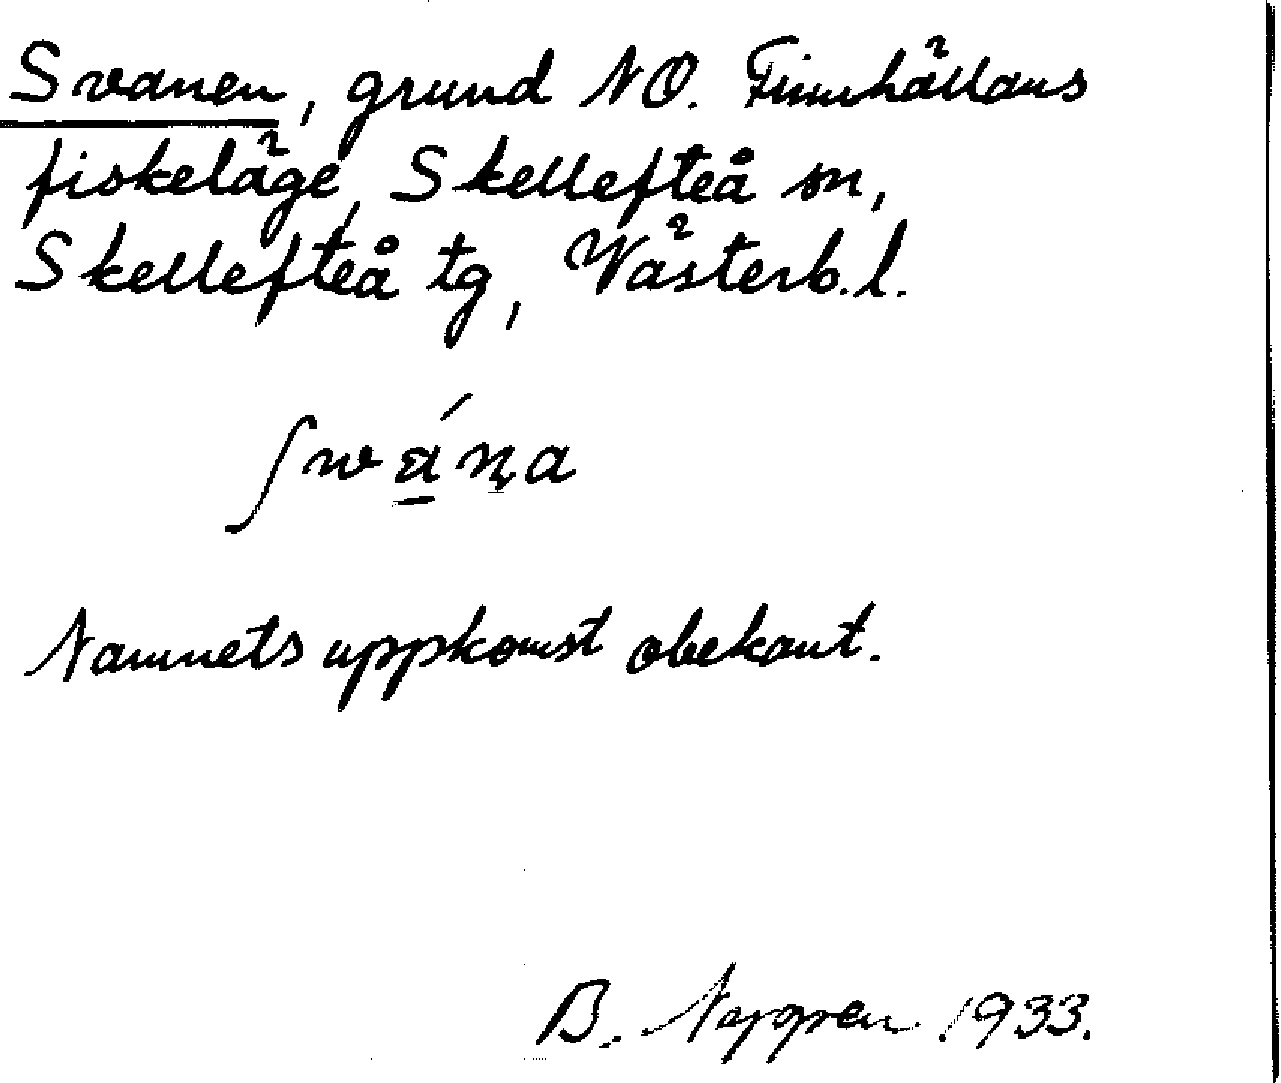 Svanen, grund NO. Finnhällans
fiskeläge, Skellefteå sn,
Skellefteå tg, Västerb. l.
Namnets uppkomst obekant.
B. 1933.